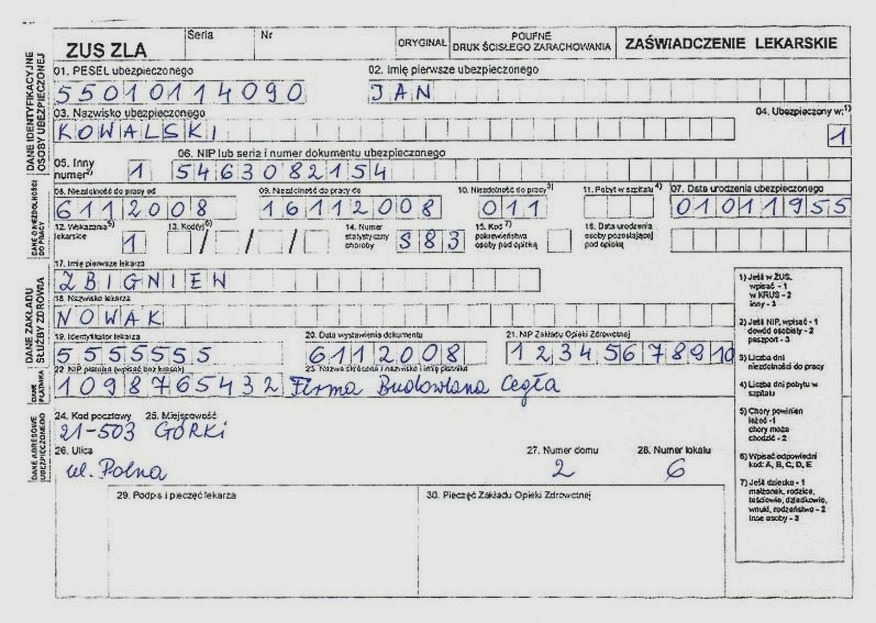 ZUS ZLA
Seria
Nr
ORYGINAŁ
POUFNE
DRUK ŚCISŁEGO ZARACHOWANIA
ZAŚWIADCZENIE LEKARSKIE
DANE IDENTYFIKACYJNE OSOBY UBEZPIECZONEJ
01. PESEL ubezpieczonego
02. Imię pierwsze ubezpieczonego
55010114090
JAN
03. Nazwisko ubezpieczonego
04. Ubezpieczony w:1)
KOWALSKI
1
05. Inny numer2)
1
06. NIP lub seria i numer dokumentu ubezpieczonego
5463082154
DANE O NIEZDOLNOŚCI DO PRACY
08. Niezdolność do pracy od
09. Niezdolność do pracy do
10. Niezdolność do pracy3)
11. Pobyt w szpitalu4)
07. Data urodzenia ubezpieczonego
6112008
16112008
011
01011955
12. Wskazania5) lekarskie
1
13. Kod(y)6)
/ / /
14. Numer statystyczny choroby
S83
15. Kod7) pokrewieństwa osoby pod opieką
16. Data urodzenia osoby pozostającej pod opieką
DANE ZAKŁADU SŁUŻBY ZDROWIA
17. Imię pierwsze lekarza
ZBIGNIEW
18. Nazwisko lekarza
NOWAK
19. Identyfikator lekarza
20. Data wystawienia dokumentu
21. NIP Zakładu Opieki Zdrowotnej
5555555
6112008
12345678910
DANE PŁATNIKA
22. NIP płatnika (wpisać bez kresek)
23. Nazwa skrócona / nazwisko i imię płatnika
1098765432
Firma Budowlana Cegła
DANE ADRESOWE UBEZPIECZONEGO
24. Kod pocztowy
25. Miejscowość
21-503 GÓRKI
26. Ulica
27. Numer domu
28. Numer lokalu
ul. Polna
2
6
29. Podpis i pieczęć lekarza
30. Pieczęć Zakładu Opieki Zdrowotnej
1) Jeśli w ZUS,
wpisać - 1
w KRUS - 2
inny - 3
2) Jeśli NIP, wpisać - 1
dowód osobisty - 2
paszport - 3
3) Liczba dni
niezdolności do pracy
4) Liczba dni pobytu w
szpitalu
5) Chory powinien
leżeć - 1
chory może
chodzić - 2
6) Wpisać odpowiedni
kod: A, B, C, D, E
7) Jeśli dziecko - 1
małżonek, rodzice,
teściowie, dziadkowie,
wnuki, rodzeństwo - 2
inne osoby - 3